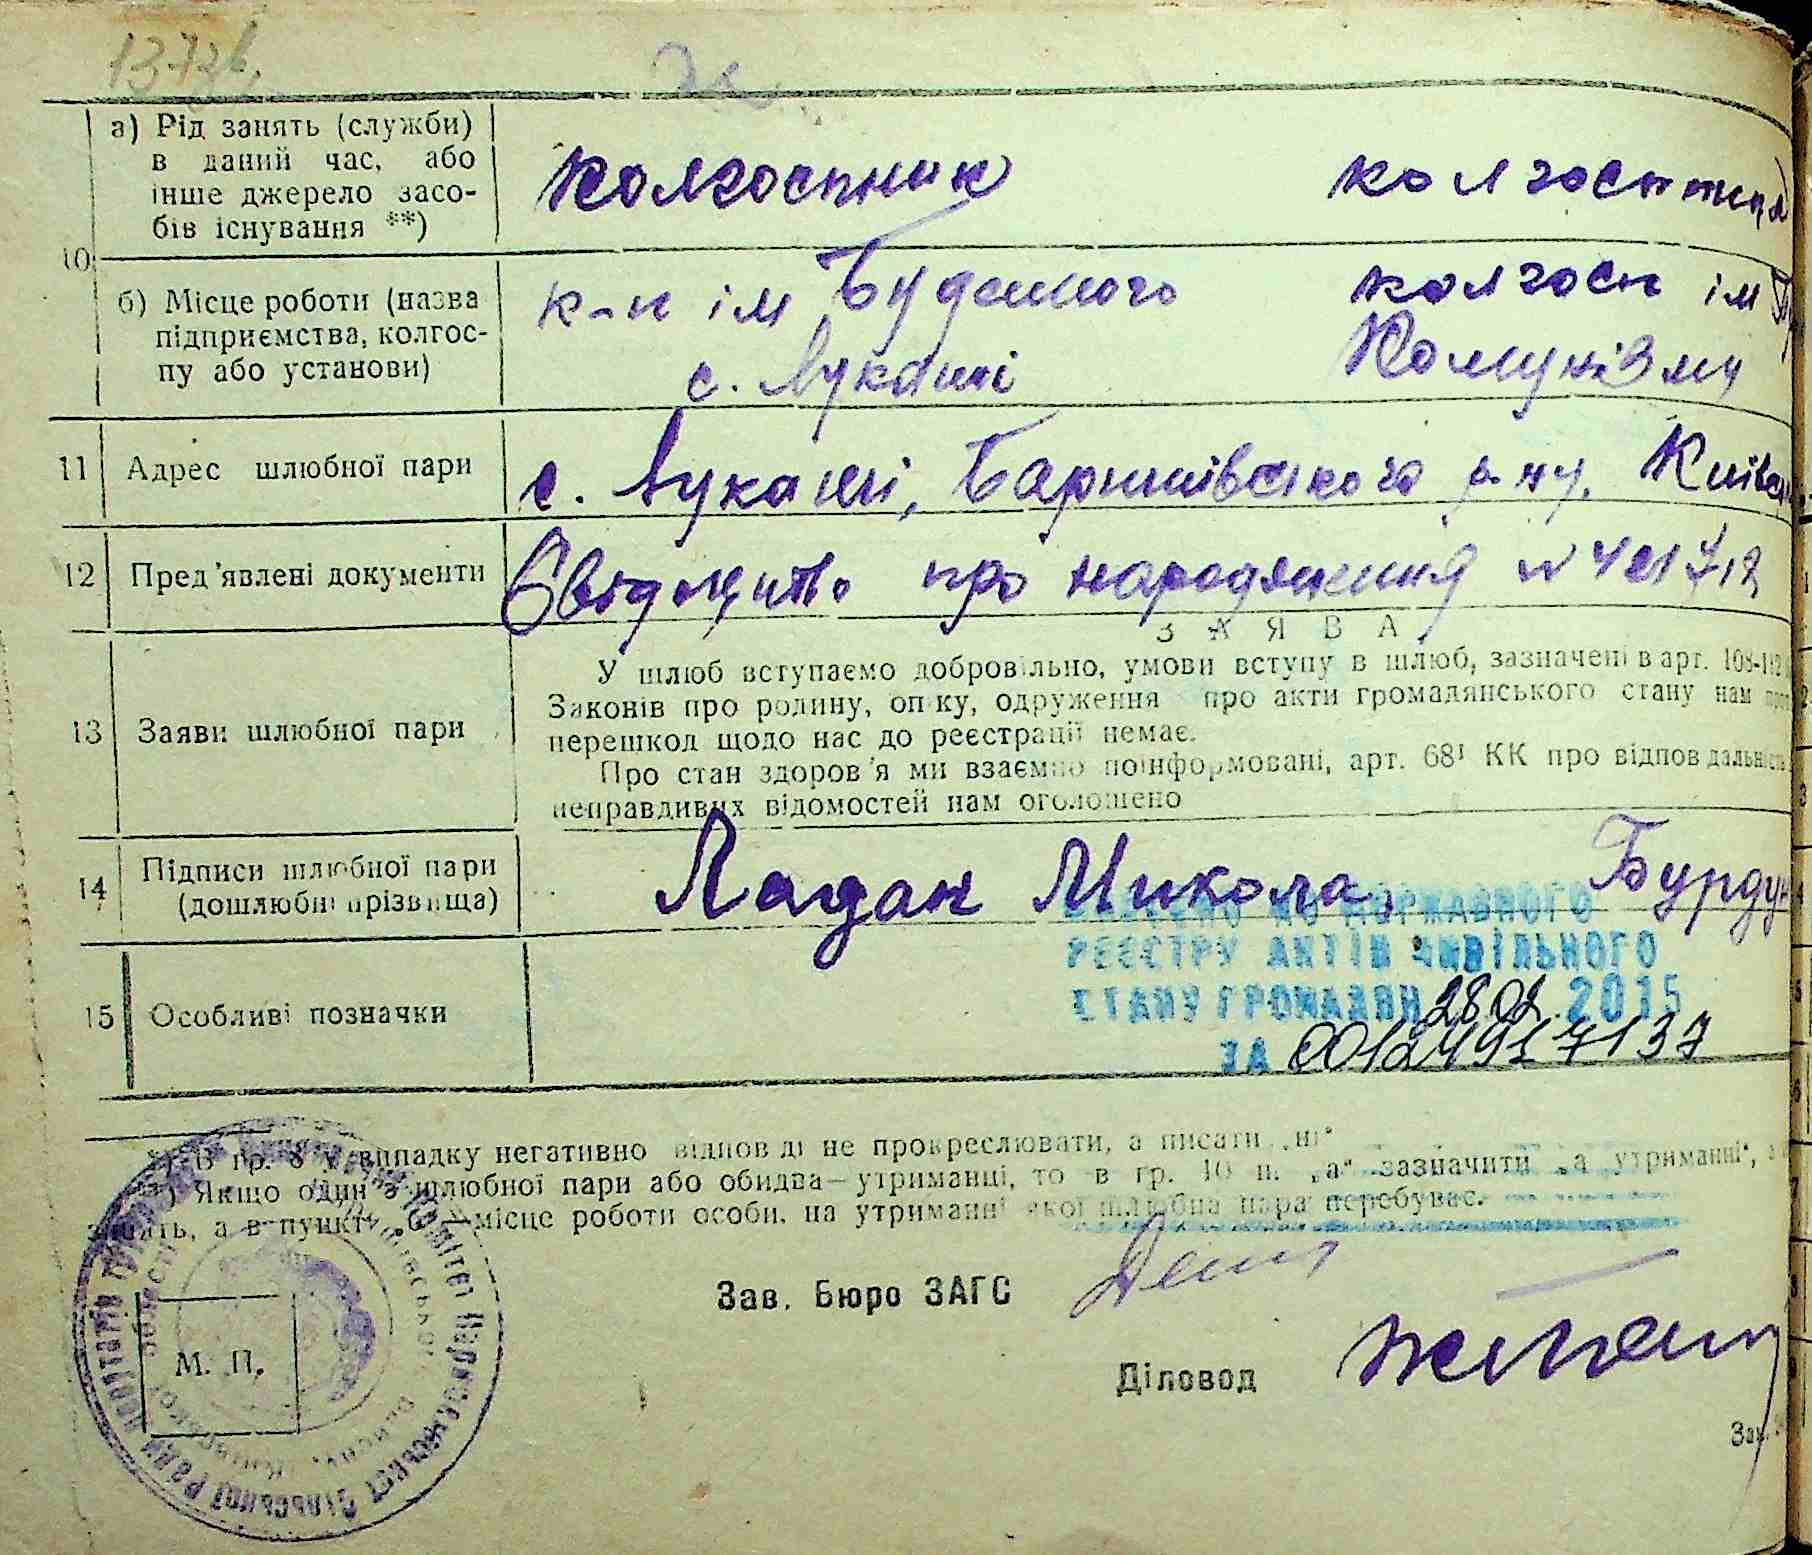 1372
10
а) Рід занять (служби)
в даний час, або
інше джерело засо-
бів існування **)
Колгоспник
колгоспниця
б) Місце роботи (назва
підприємства, колгос-
пу або установи)
к-п ім Будьонного
с. Лукаші
колгосп ім
Комунізму
11 Адрес шлюбної пари
с. Лукаші, Баришівського р-ну, Київсь
12 Пред'явлені документи
Свідоцтво про народження
13 Заяви шлюбної пари
ЗАЯВА
У шлюб вступаємо добровільно, умови вступу в шлюб, зазначені в арт. 108-112
Законів про родину, опіку, одруження про акти громадянського стану нам
перешкод щодо нас до реєстрації немає.
Про стан здоров'я ми взаємно поінформовані, арт. 68¹ КК про відповідальність
неправдивих відомостей нам оголошено
14 Підписи шлюбної пари
(дошлюбні прізвища)
Ладан Микола,
Бурду
15 Особливі позначки
ВНЕСЕНО ДО ДЕРЖАВНОГО
РЕЄСТРУ АКТІВ ЦИВІЛЬНОГО
СТАНУ ГРОМАДЯН 28.02.2015
ЗА 0012491 7137
*) В гр. 8 у випадку негативної відповіді не прокреслювати, а писати „ні"
**) Якщо один з шлюбної пари або обидва—утриманці, то в гр. 10 п. „а" зазначити „на утриманні",
а в пункті „б"—місце роботи особи, на утриманні якої шлюбна пара перебуває.
Зав. Бюро ЗАГС
Діловод
М. П.
Зак.